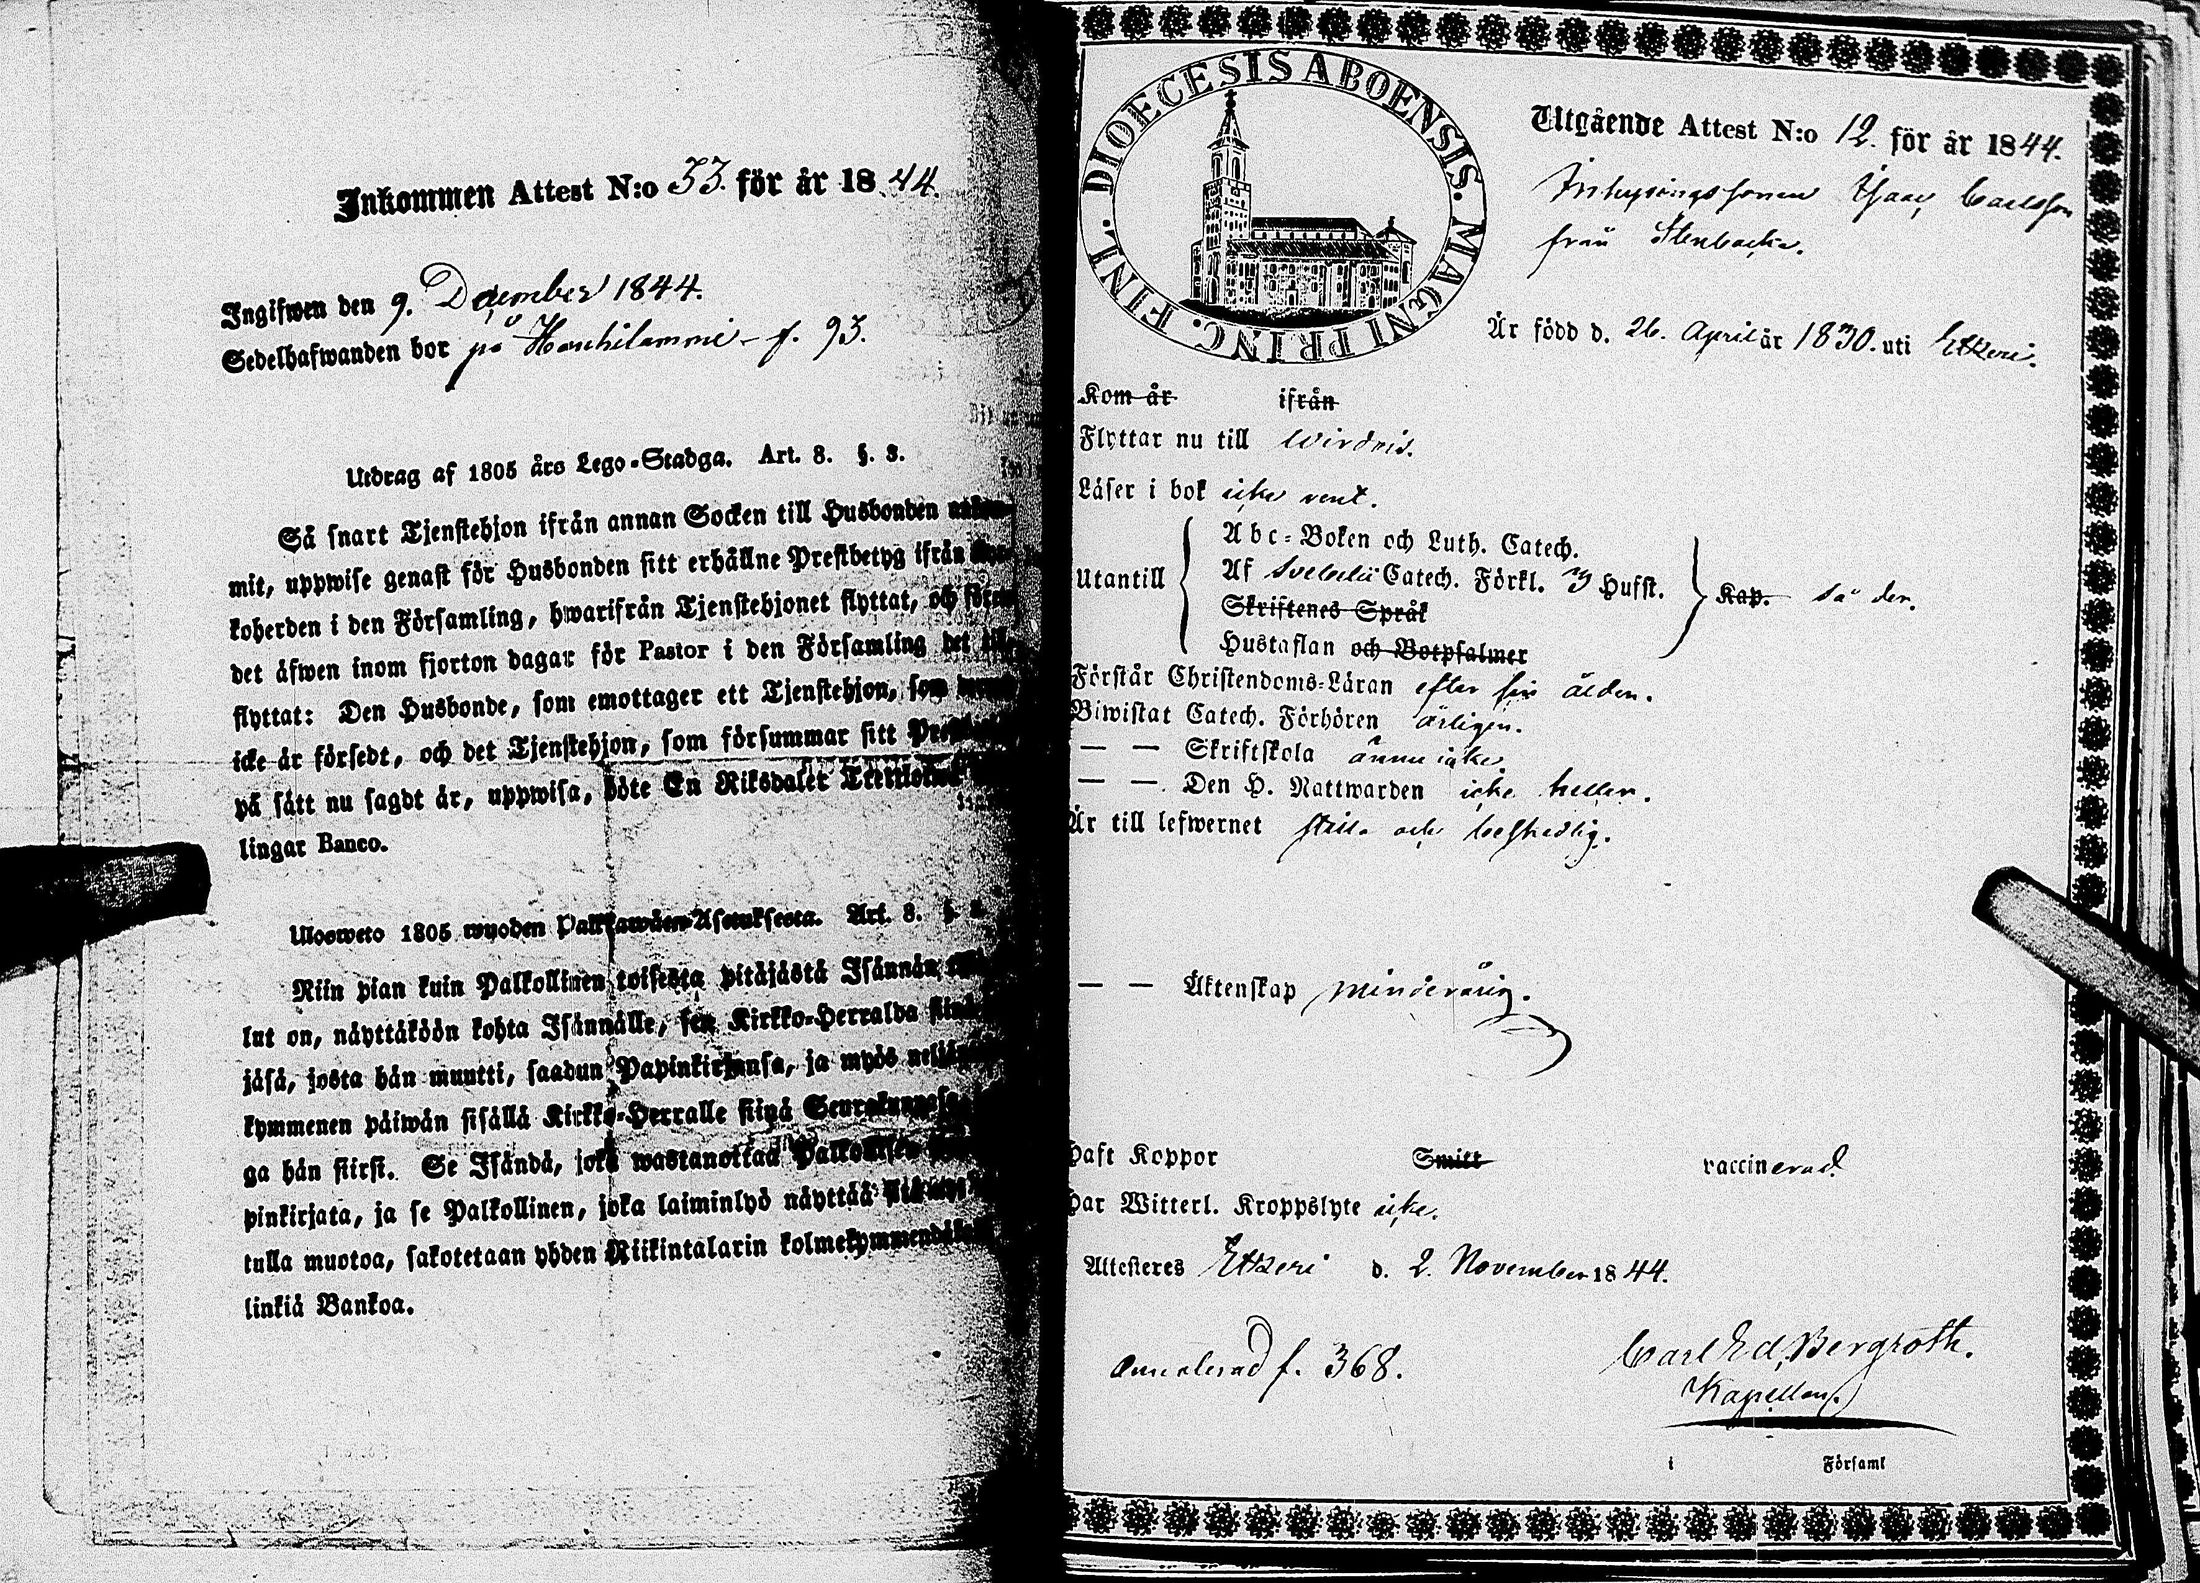 Inkommen Attest N:o 53. för år 1844.
Ingifwen den 9. December 1844.
Sedelhafwanden bor på Hanhilammi - f. 93.
Utdrag af 1805 års Lego-Stadga. Art. 8. §. 3.
Så snart Tjenstehjon ifrån annan Socken till Husbonden
mit, uppwise genast för Husbonden sitt erhållne Prestbetyg ifrån
koherden i den Församling, hwarifrån Tjenstehjonet flyttat, och
det äfwen inom fjorton dagar för Pastor i den Församling det
flyttat: Den Husbonde, som emottager ett Tjenstehjon, som
icke är försedt, och det Tjenstehjon, som försummar sitt
på sätt nu sagdt är, uppwisa, böte En Riksdaler
lingar Banco.
Uloosweto 1805 wuoden Palkkawäen-Asetuksesta. Art. 8. §.
Niin pian kuin Palkollinen toisesta pitäjästä Isännän
lut on, näyttäköön kohta Isännälle, sen Kirkko-Herralda
jäsä, josta hän muutti, saadun Papinkirjansa, ja myös
kymmenen päiwän sisällä Kirkko-Herralle siinä
ga hän siirsi. Se Isändä, joka wastanottaa Palkollisen
pinkirjata, ja se Palkollinen, joka laiminlyö näyttää
tulla muotoa, sakotetaan yhden Riikintalarin
linkiä Bankoa.
DIOECESIS ABOENSIS. MAGNI PRINC. FINL.
Utgående Attest N:o 12. för år 1844.
Inhysingssonen Isaac Carlsson
från Stenbacka.
Är född d. 26. April år 1830. uti Etseri.
Kom år ifrån
Flyttar nu till Wirdois.
Läser i bok icke rent.
Utantill
Abc-Boken och Luth. Catech.
Af Svebelii Catech. Förkl. 3 Hufst.
Skriftenes Språk
Hustaflan och Botpsalmer
Kap. så der.
Förstår Christendoms-Läran efter sin ålder.
Biwistat Catech. Förhören årligen.
— — Skriftskola ännu icke.
— — Den H. Nattwarden icke heller.
Är till lefwernet stilla och beskedlig.
— — Äktenskap minderårig.
Haft Koppor Smitt vaccinerad
Har Witterl. Kroppslyte icke.
Attesteres Etseri d. 2. November 1844.
Annoterad f. 368.
Carl Ed. Bergroth.
Kapellan.
i Församl